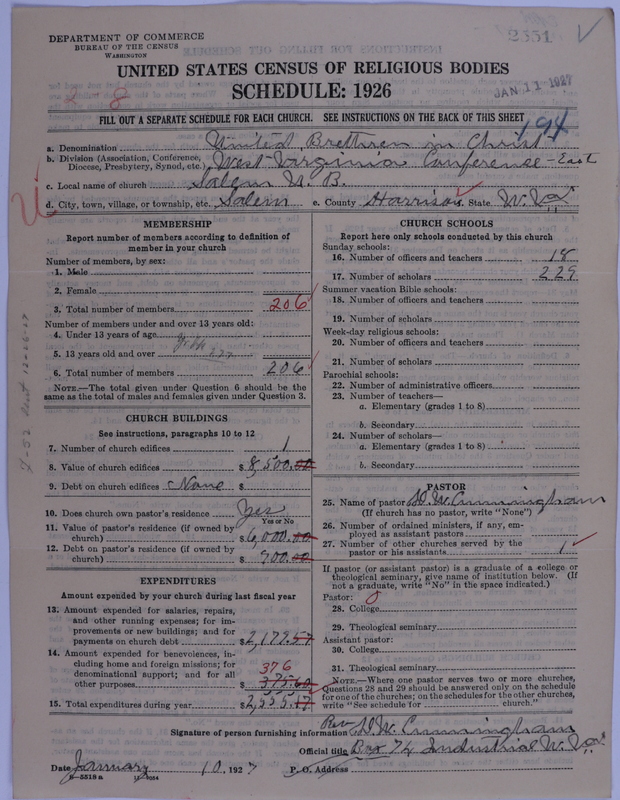 DEPARTMENT OF COMMERCE
BUREAU OF THE CENSUS
WASHINGTON
2351
JAN 11 1927
UNITED STATES CENSUS OF RELIGIOUS BODIES
SCHEDULE: 1926
2-8
FILL OUT A SEPARATE SCHEDULE FOR EACH CHURCH. SEE INSTRUCTIONS ON THE BACK OF THIS SHEET
194
a. Denomination United Brethren in Christ
b. Division (Association, Conference, Diocese, Presbytery, Synod, etc.) West Virginia Conference - East
c. Local name of church Salem U. B.
d. City, town, village, or township, etc. Salem e. County Harrison f. State W. Va
MEMBERSHIP
Report number of members according to definition of
member in your church
Number of members, by sex:
1. Male
2. Female
3. Total number of members 206
Number of members under and over 13 years old:
4. Under 13 years of age
5. 13 years old and over
6. Total number of members 206
NOTE.—The total given under Question 6 should be the
same as the total of males and females given under Question 3.
CHURCH BUILDINGS
See instructions, paragraphs 10 to 12
7. Number of church edifices 1
8. Value of church edifices $ 8,500.00
9. Debt on church edifices None $
10. Does church own pastor's residence Yes
Yes or No
11. Value of pastor's residence (if owned by
church) $ 6,000.00
12. Debt on pastor's residence (if owned by
church) $ 900.00
EXPENDITURES
Amount expended by your church during last fiscal year
13. Amount expended for salaries, repairs,
and other running expenses; for im-
provements or new buildings; and for
payments on church debt $ 2,179.57
14. Amount expended for benevolences, in-
cluding home and foreign missions; for
denominational support; and for all
other purposes $ 375.60
376
15. Total expenditures during year $ 2,555.17
CHURCH SCHOOLS
Report here only schools conducted by this church
Sunday schools:
16. Number of officers and teachers 18
17. Number of scholars 229
Summer vacation Bible schools:
18. Number of officers and teachers
19. Number of scholars
Week-day religious schools:
20. Number of officers and teachers
21. Number of scholars
Parochial schools:
22. Number of administrative officers
23. Number of teachers—
a. Elementary (grades 1 to 8)
b. Secondary
24. Number of scholars—
a. Elementary (grades 1 to 8)
b. Secondary
PASTOR
25. Name of pastor D. W. Cunningham
(If church has no pastor, write "None")
26. Number of ordained ministers, if any, em-
ployed as assistant pastors
27. Number of other churches served by the
pastor or his assistants 1
If pastor (or assistant pastor) is a graduate of a college or
theological seminary, give name of institution below. (If
not a graduate, write "No" in the space indicated.)
Pastor: 0
28. College
29. Theological seminary
Assistant pastor:
30. College
31. Theological seminary
NOTE.—Where one pastor serves two or more churches,
Questions 28 and 29 should be answered only on the schedule
for one of the churches; on the schedules for the other churches,
write "See schedule for church."
Signature of person furnishing information Rev D. W. Cunningham
Official title Box 74 Industrial W. Va
Date January 10, 1927 P. O. Address
8-5518 a